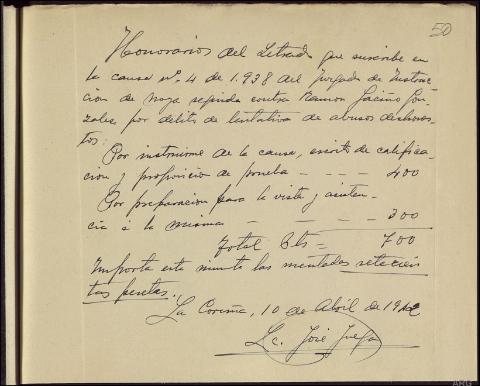 50
Honorarios del Letrado que suscribe en
la causa nº. 4 de 1.938 del Juzgado de Instruc-
cion de Noya seguida contra Ramon Gon-
zales por delito de tentativa de abusos deshones-
tos:
Por instruirme de la causa, escrito de califica-
cion y proposicio de prueba - - - - 400
Por preparacion para la vista y asisten-
cia á la misma - - - - - 300
Total Pts = 700
Importa esta minuta las mentadas setecien
tas pesetas.,
La Coruña, 10 de Abril de
Lc. José
ARG